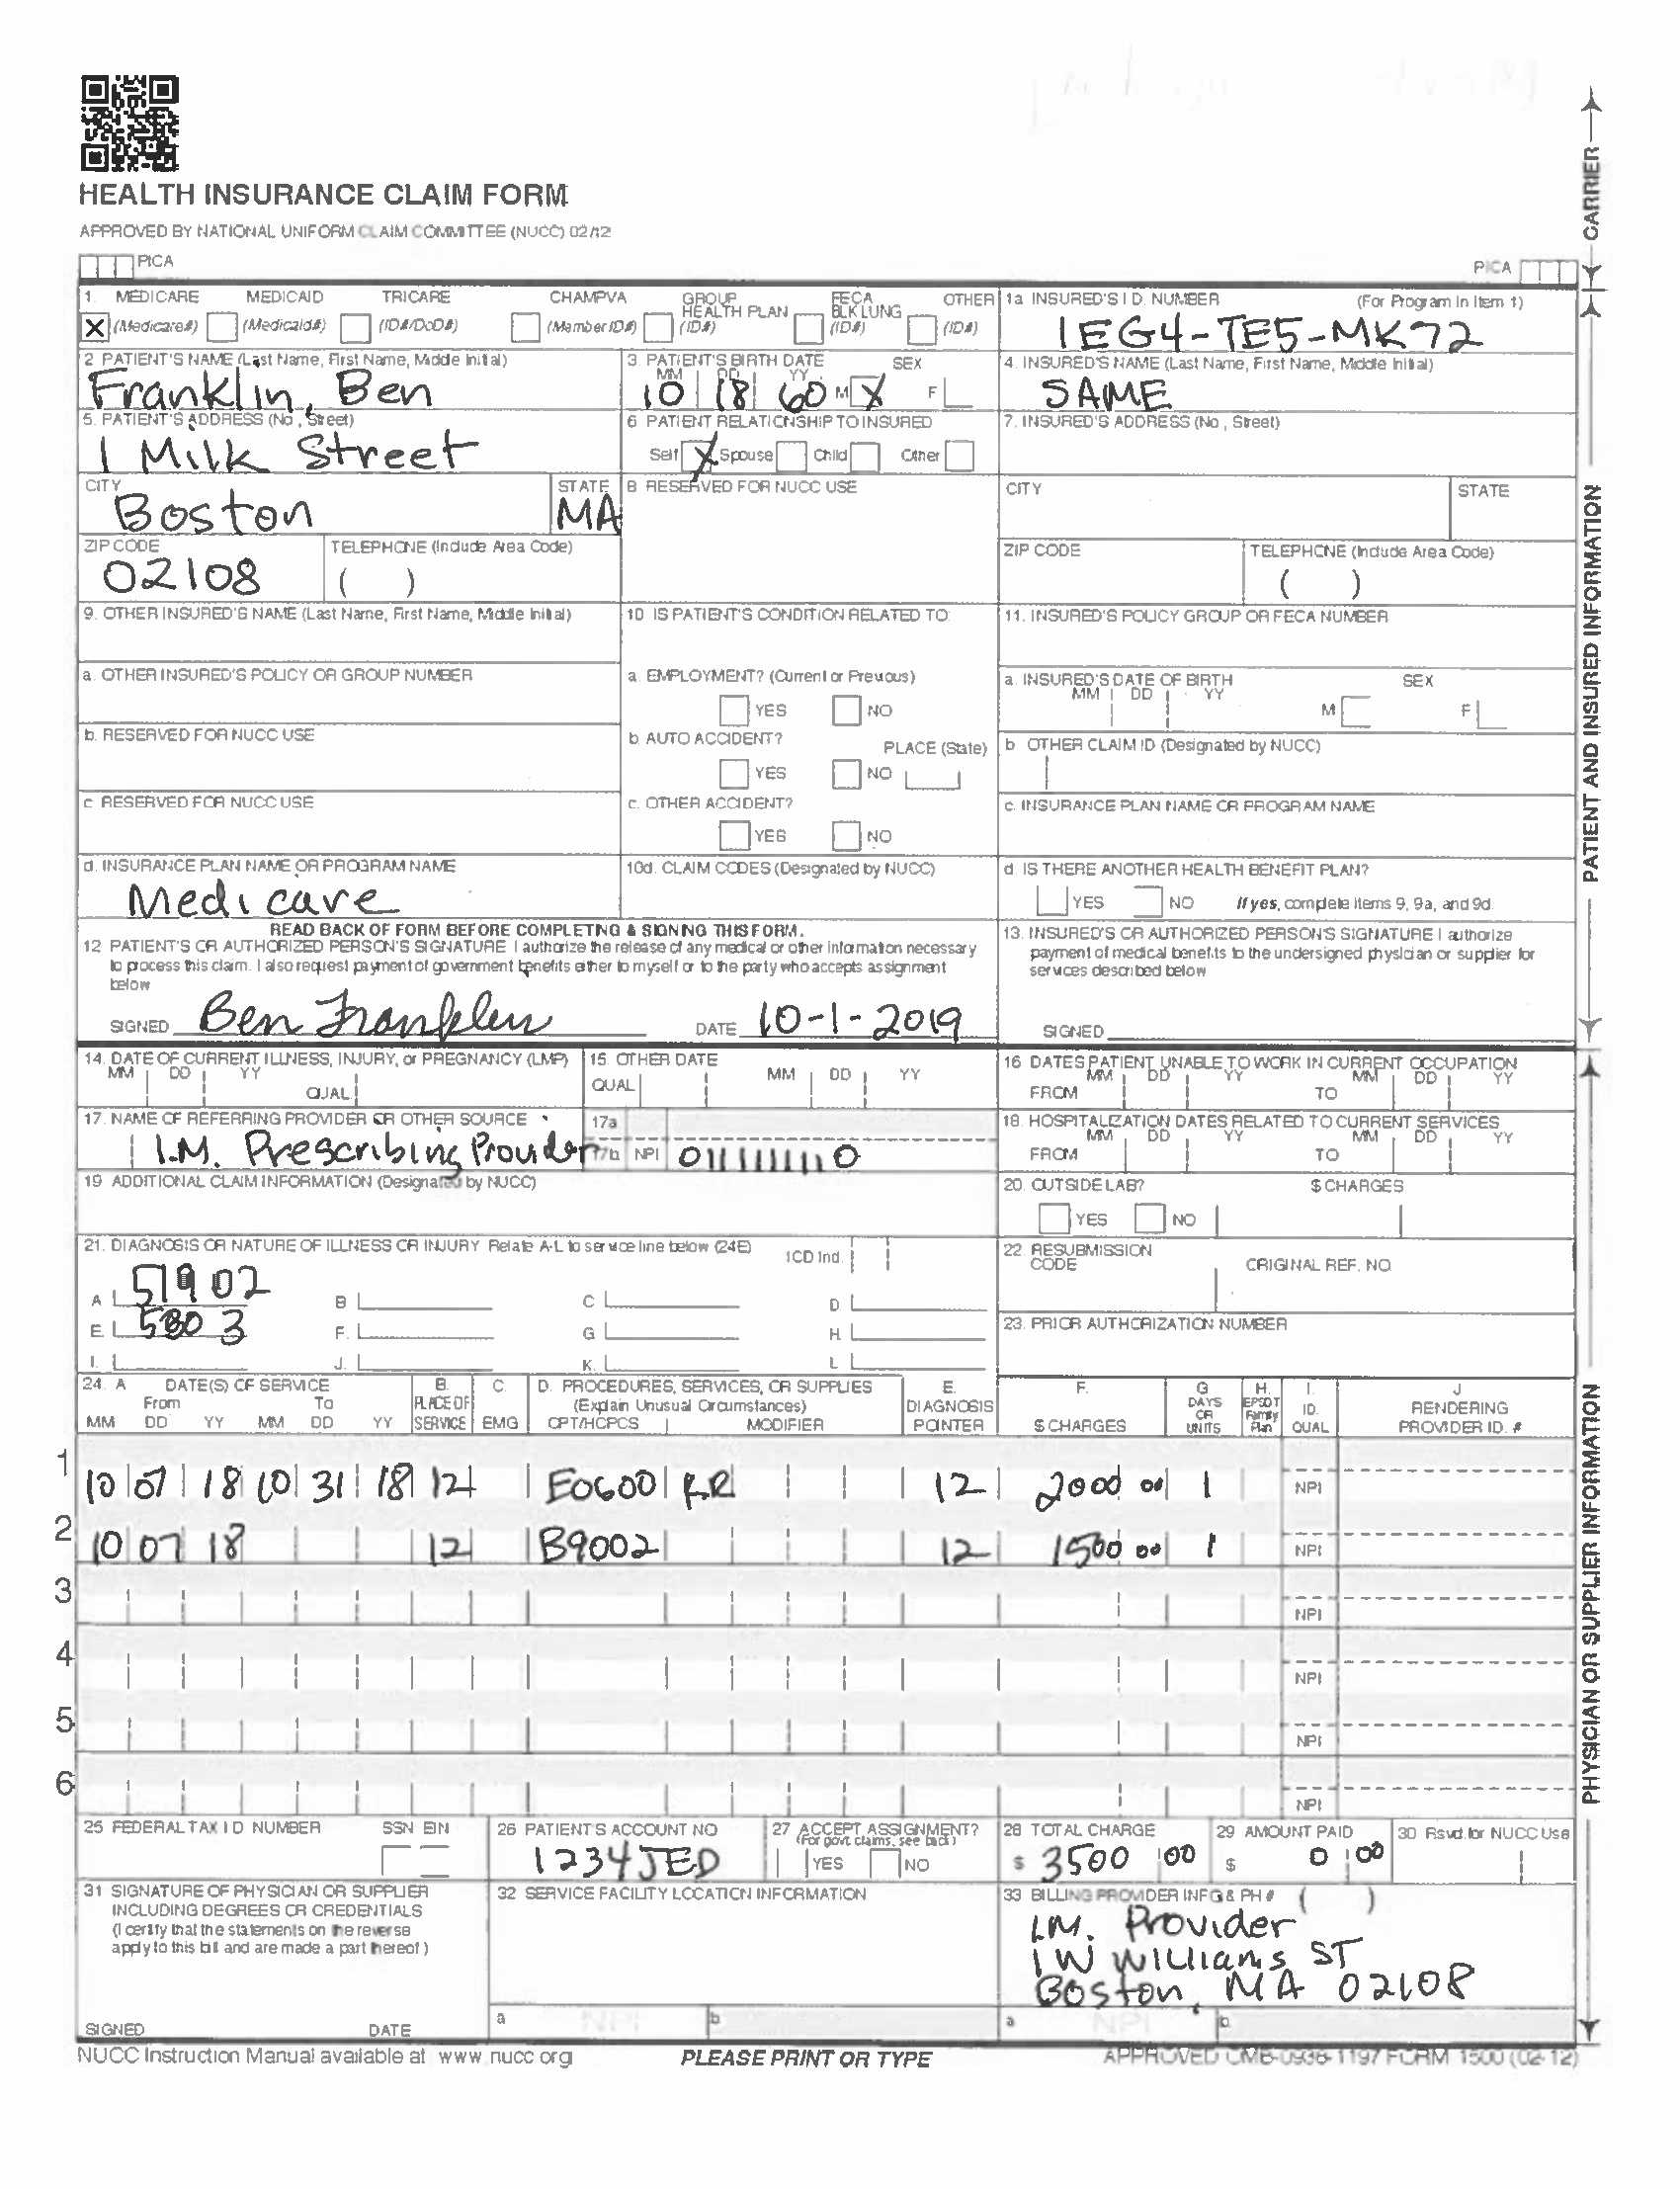 HEALTH INSURANCE CLAIM FORM
APPROVED BY NATIONAL UNIFORM CLAIM COMMITTEE (NUCC) 02/12
PICA PICA
CARRIER
1. MEDICARE MEDICAID TRICARE CHAMPVA GROUP HEALTH PLAN FECA BLK LUNG OTHER
X (Medicare#) (Medicaid#) (ID#/DoD#) (Member ID#) (ID#) (ID#) (ID#)
1a INSURED'S I D. NUMBER (For Program in Item 1)
1EG4-TE5-MK72
2 PATIENT'S NAME (Last Name, First Name, Middle Initial)
Franklin, Ben
3. PATIENT'S BIRTH DATE SEX
MM DD YY
10 18 60 M X F
4. INSURED'S NAME (Last Name, First Name, Middle Initial)
SAME
5. PATIENT'S ADDRESS (No, Street)
1 Milk Street
6 PATIENT RELATIONSHIP TO INSURED
Self X Spouse Child Other
7. INSURED'S ADDRESS (No, Street)
CITY STATE
Boston MA
8 RESERVED FOR NUCC USE
CITY STATE
ZIP CODE TELEPHONE (Include Area Code)
02108 ( )
ZIP CODE TELEPHONE (Include Area Code)
( )
9. OTHER INSURED'S NAME (Last Name, First Name, Middle Initial)
10 IS PATIENT'S CONDITION RELATED TO
11. INSURED'S POLICY GROUP OR FECA NUMBER
a. OTHER INSURED'S POLICY OR GROUP NUMBER
a. EMPLOYMENT? (Current or Previous)
YES NO
a. INSURED'S DATE OF BIRTH SEX
MM DD YY M F
b. RESERVED FOR NUCC USE
b AUTO ACCIDENT? PLACE (State)
YES NO
b OTHER CLAIM ID (Designated by NUCC)
c RESERVED FOR NUCC USE
c. OTHER ACCIDENT?
YES NO
c. INSURANCE PLAN NAME OR PROGRAM NAME
d. INSURANCE PLAN NAME OR PROGRAM NAME
Medicare
10d. CLAIM CODES (Designated by NUCC)
d. IS THERE ANOTHER HEALTH BENEFIT PLAN?
YES NO If yes, complete items 9, 9a, and 9d.
READ BACK OF FORM BEFORE COMPLETING & SIGNING THIS FORM.
12 PATIENT'S OR AUTHORIZED PERSON'S SIGNATURE I authorize the release of any medical or other information necessary
to process this claim. I also request payment of government benefits either to myself or to the party who accepts assignment
below
SIGNED Ben Franklin DATE 10-1-2019
13. INSURED'S OR AUTHORIZED PERSON'S SIGNATURE I authorize
payment of medical benefits to the undersigned physician or supplier for
services described below
SIGNED
PATIENT AND INSURED INFORMATION
14. DATE OF CURRENT ILLNESS, INJURY, or PREGNANCY (LMP)
MM DD YY QUAL
15. OTHER DATE
QUAL MM DD YY
16 DATES PATIENT UNABLE TO WORK IN CURRENT OCCUPATION
MM DD YY MM DD YY
FROM TO
17. NAME OF REFERRING PROVIDER OR OTHER SOURCE
I.M. Prescribing Provider
17a
17b NPI 0111111110
18. HOSPITALIZATION DATES RELATED TO CURRENT SERVICES
MM DD YY MM DD YY
FROM TO
19 ADDITIONAL CLAIM INFORMATION (Designated by NUCC)
20. OUTSIDE LAB? $ CHARGES
YES NO
21. DIAGNOSIS OR NATURE OF ILLNESS OR INJURY Relate A-L to service line below (24E) ICD Ind.
A 51902 B C D.
E. 5303 F. G H.
I. J. K. L
22. RESUBMISSION CODE ORIGINAL REF. NO.
23. PRIOR AUTHORIZATION NUMBER
24. A DATE(S) OF SERVICE B. C. D. PROCEDURES, SERVICES, OR SUPPLIES E. F. G H. I. J
From To PLACE OF (Explain Unusual Circumstances) DIAGNOSIS DAYS OR EPSDT Family ID. RENDERING
MM DD YY MM DD YY SERVICE EMG CPT/HCPCS MODIFIER POINTER $ CHARGES UNITS Plan QUAL PROVIDER ID. #
1 10 07 18 10 31 18 12 E0600 RR 12 2000 00 1 NPI
2 10 07 18 12 B9002 12 1500 00 1 NPI
3 NPI
4 NPI
5 NPI
6 NPI
25 FEDERAL TAX I D NUMBER SSN EIN
26 PATIENT'S ACCOUNT NO
1234JED
27 ACCEPT ASSIGNMENT?
(For govt. claims, see back)
YES NO
28 TOTAL CHARGE
$ 3500 00
29 AMOUNT PAID
$ 0 00
30 Rsvd. for NUCC Use
31 SIGNATURE OF PHYSICIAN OR SUPPLIER
INCLUDING DEGREES OR CREDENTIALS
(I certify that the statements on the reverse
apply to this bill and are made a part thereof)
SIGNED DATE
32 SERVICE FACILITY LOCATION INFORMATION
a NPI b
33 BILLING PROVIDER INFO & PH # ( )
I.M. Provider
1 W Williams ST
Boston, MA 02108
a NPI b
PHYSICIAN OR SUPPLIER INFORMATION
NUCC Instruction Manual available at www nucc org
PLEASE PRINT OR TYPE
APPROVED OMB-0938-1197 FORM 1500 (02-12)